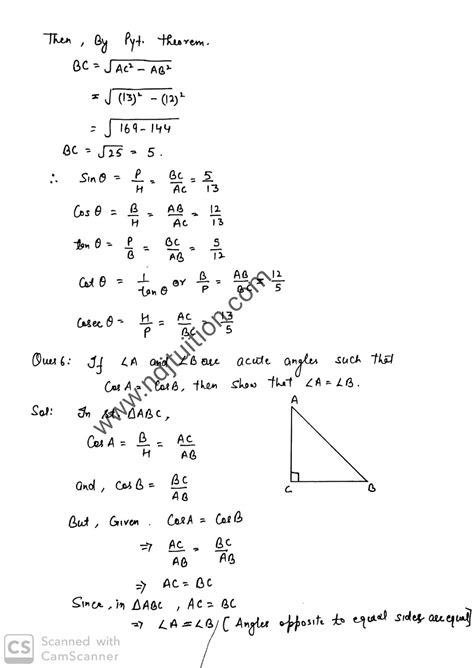 Then, By Pyt. theorem.
BC = √AC² - AB²
= √(13)² - (12)²
= √169 - 144
BC = √25 = 5.
∴ Sinθ = P/H = BC/AC = 5/13
Cosθ = B/H = AB/AC = 12/13
tanθ = P/B = BC/AB = 5/12
Cotθ = 1/tanθ or B/P = AB/BC = 12/5
Cosecθ = H/P = AC/BC = 13/5
Ques 6: If ∠A and ∠B are acute angles such that
CosA = CosB, then show that ∠A = ∠B.
Sol: In rt. ΔABC,
CosA = B/H = AC/AB
and, CosB = BC/AB
But, Given. CosA = CosB
⇒ AC/AB = BC/AB
⇒ AC = BC
Since, in ΔABC, AC = BC
⇒ ∠A = ∠B [Angles opposite to equal sides are equal]
A
C
B
www.ndjtuition.com
CS
Scanned with
CamScanner